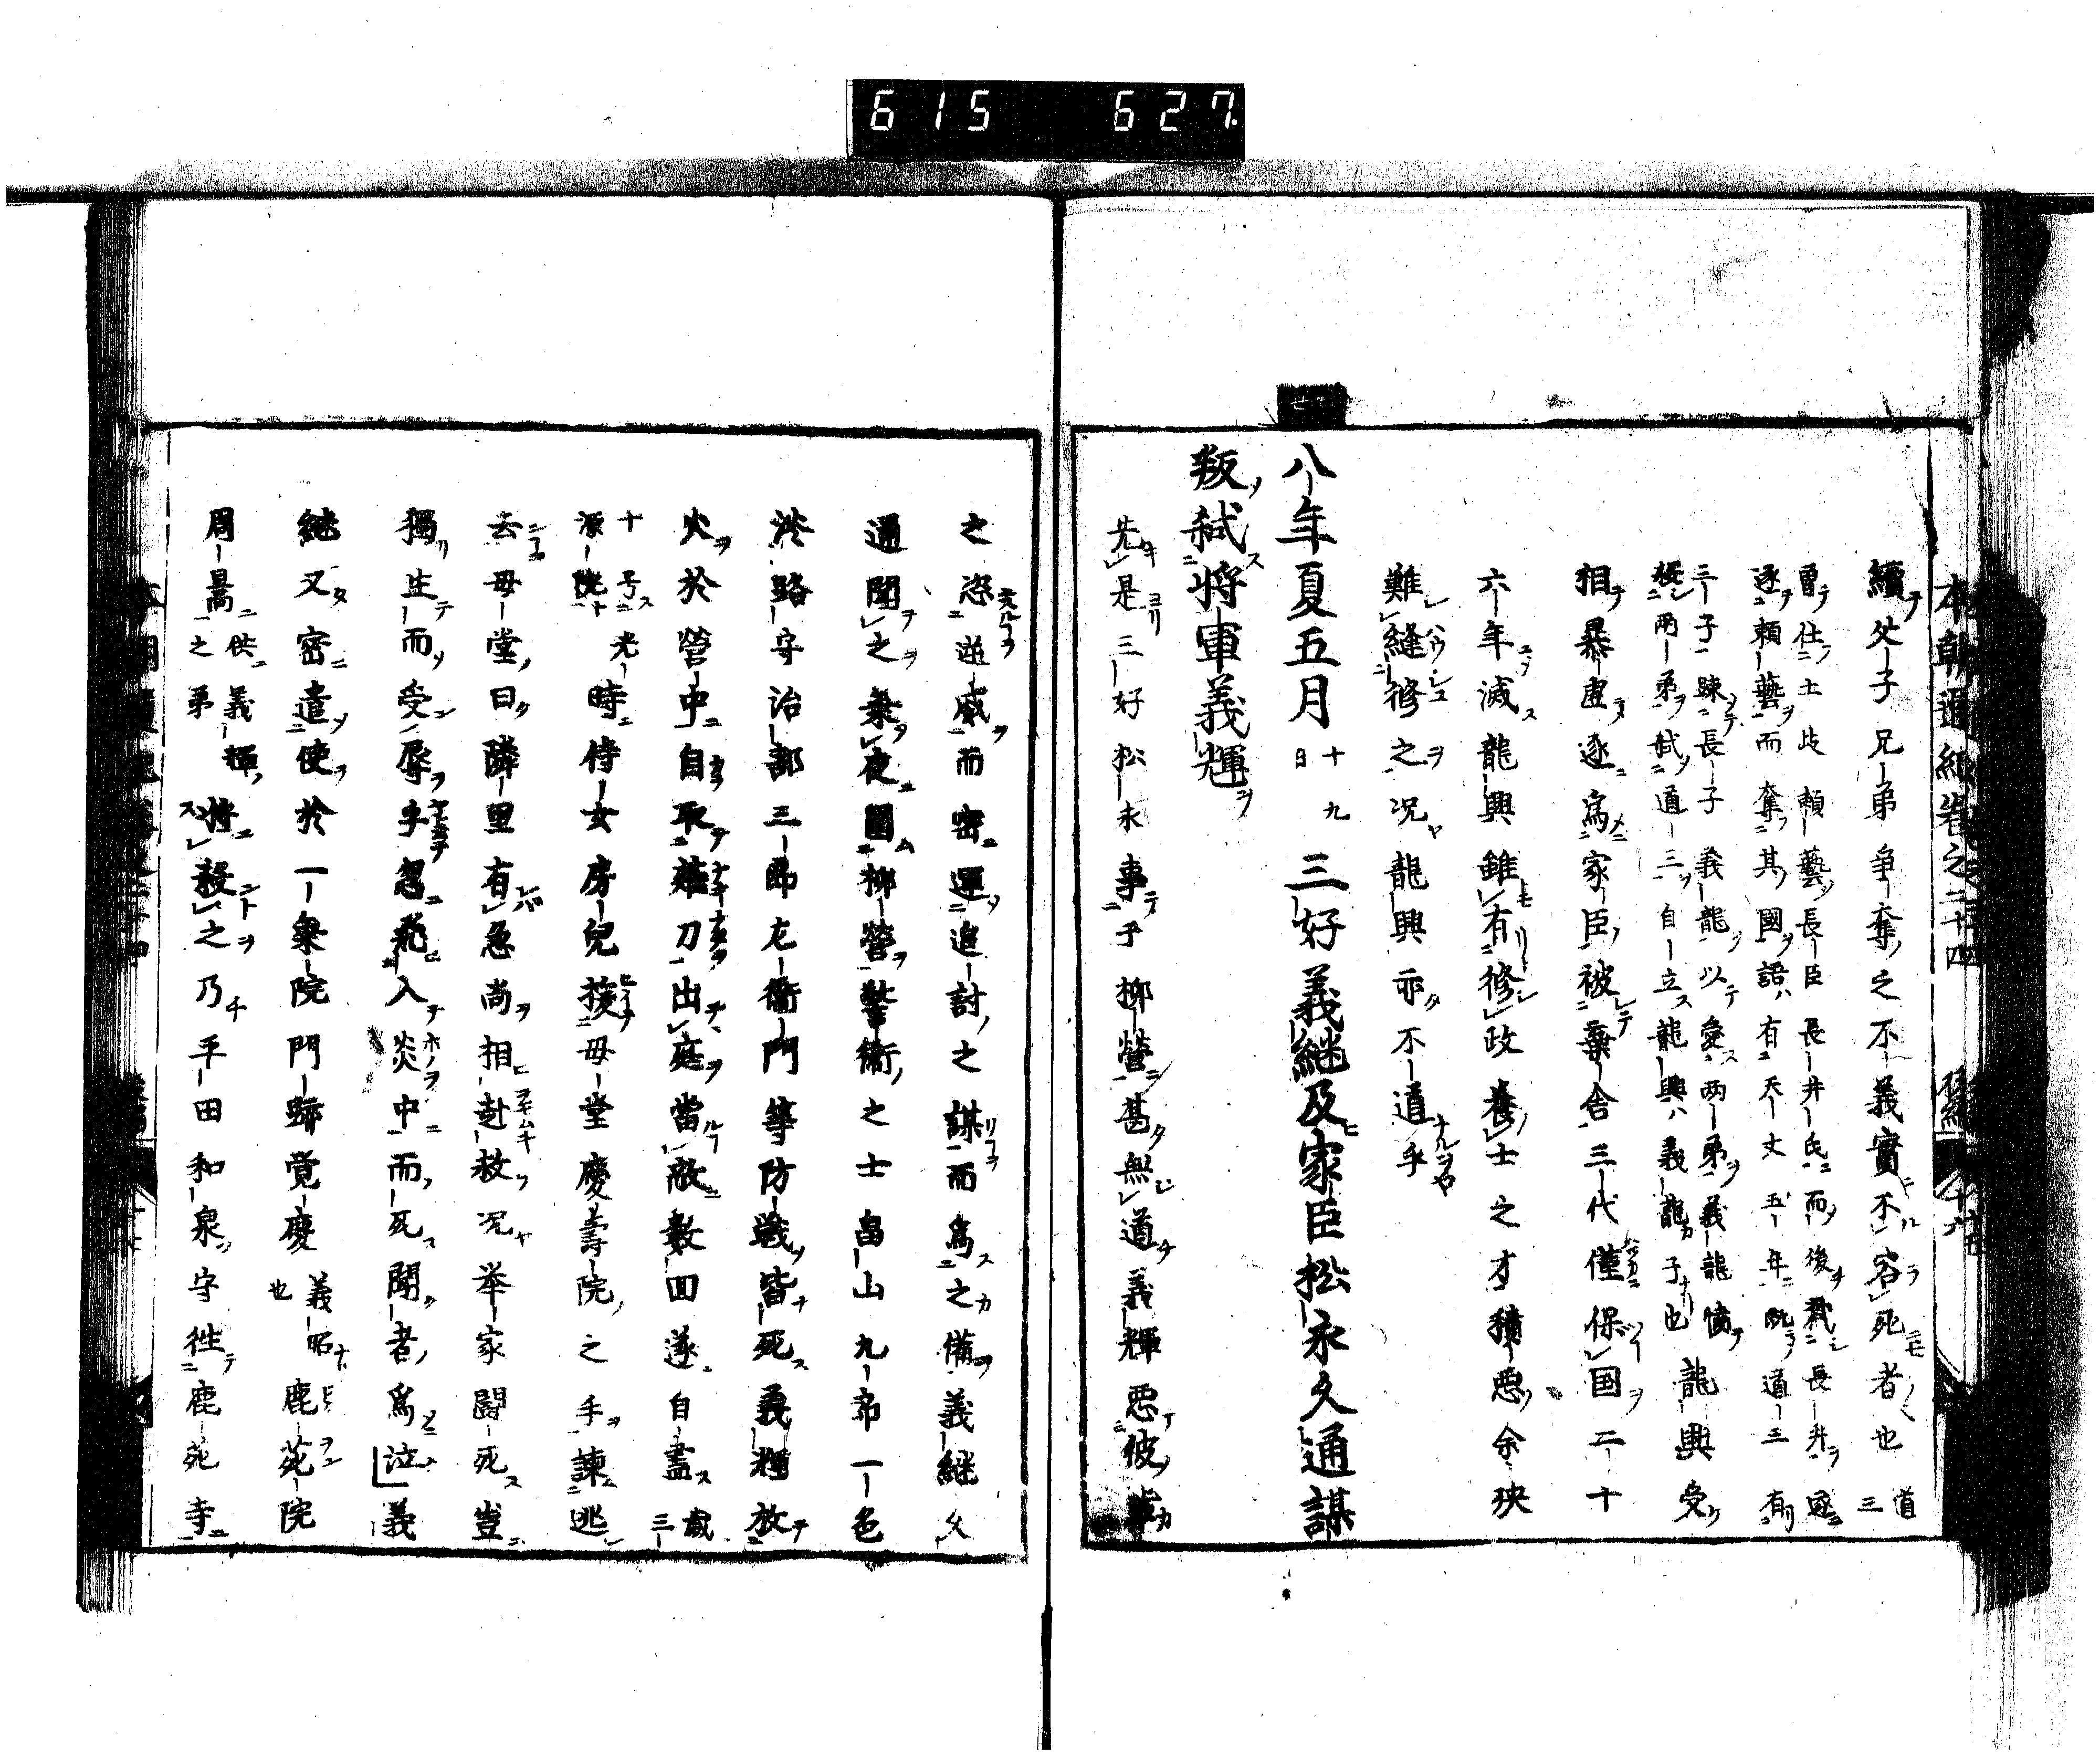 615 627
本朝通紀巻之二十四
續父子兄弟爭奪之不義實不容死者也 道三
曽仕土岐頼藝長臣長井氏而後弑長井逐
逐頼藝而奪其國語有天文五年既道三有
三子踈長子義龍以愛两弟義龍憤
殺两弟弑道三自立龍興義龍子也 龍興受
相暴虐逐為家臣被棄舎三代僅保国二十
六年滅龍興雖有修政養士之才積悪余殃
難縫修之況龍興亦不道乎
八年夏五月 十九日 三好義継及家臣松永久通謀
叛弑将軍義輝
先是三好松永事乎柳營甚無道義輝悪彼輩
之恣逆威而密運追討之謀而為之備義継久
通聞之乗夜圍柳營警衛之士畠山九郎一色
淡路守治部三郎左衛門等防戦皆死義輝放
火於營中自取薙刀出庭當敵數回遂自盡 歳三
十号光源院 時侍女房兒援母堂慶壽院之手諫逃
去母堂曰隣里有急尚相赴救況举家闘死豈
獨生而受辱乎忽飛入炎中而死聞者為泣 義
継又密遣使於一乗院門跡覚慶 義昭也 鹿苑院
周暠 供義輝之弟 将殺之乃平田和泉守徃鹿苑寺